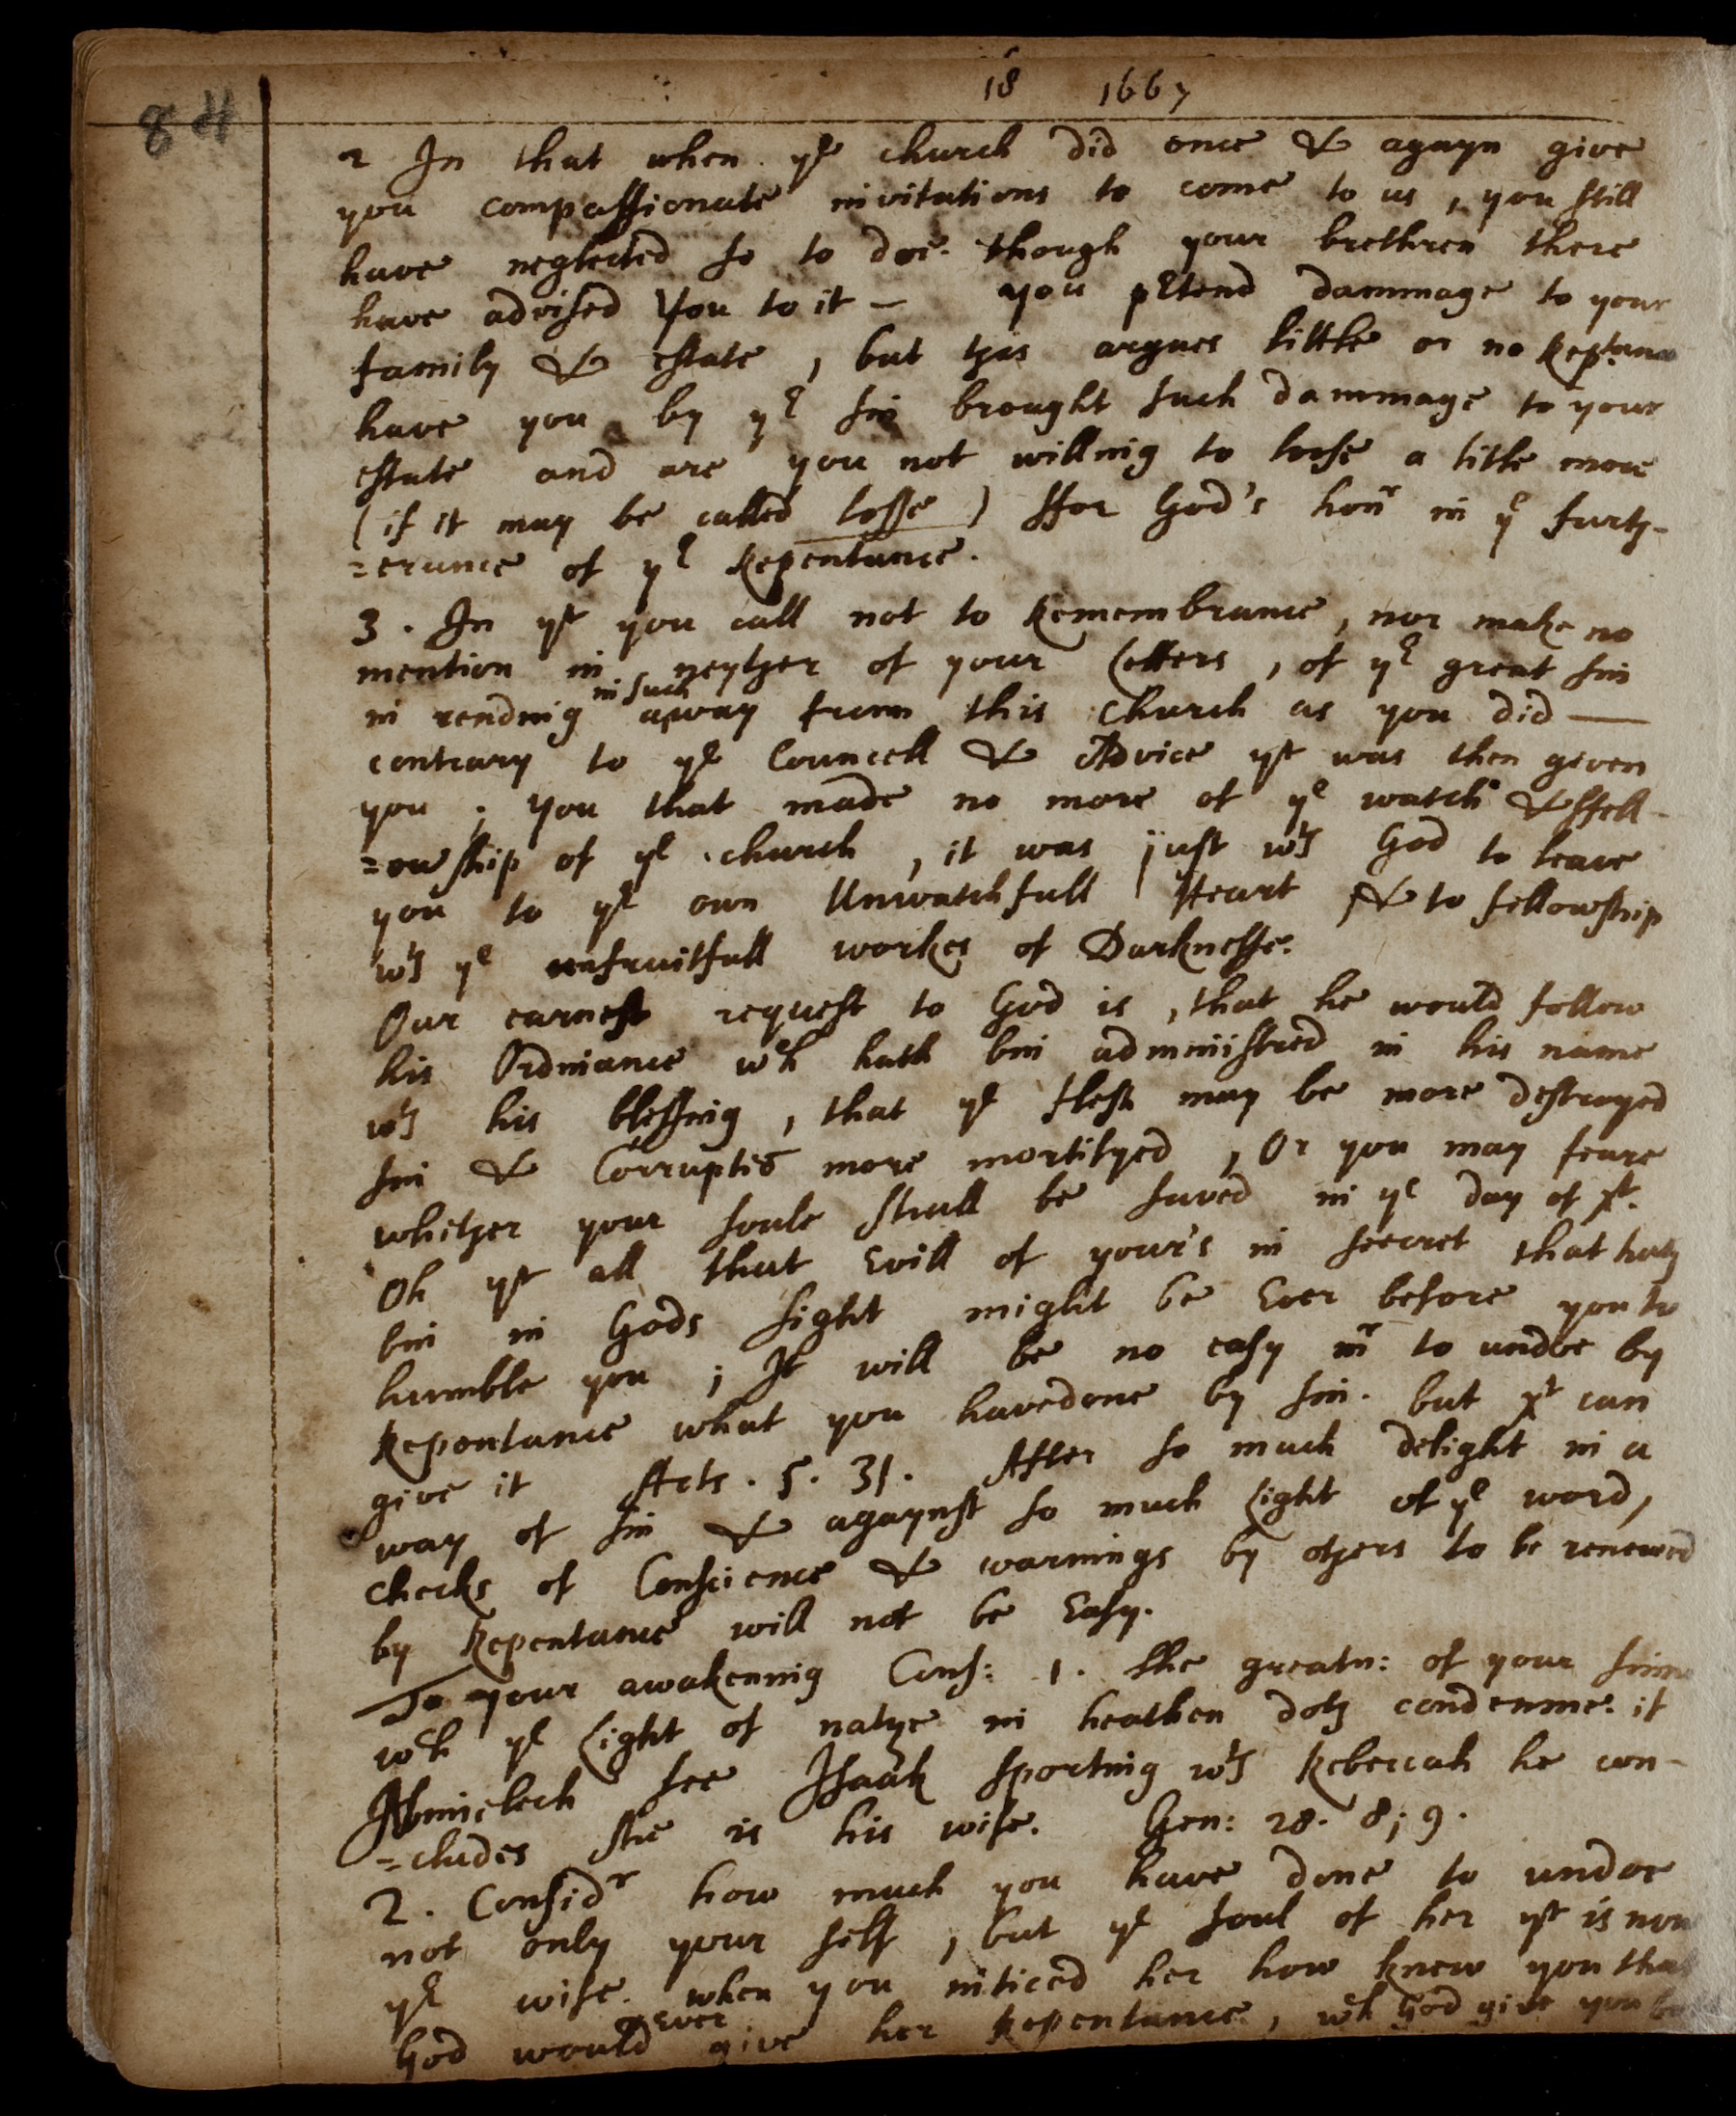 18 1667
84
2 In that when ye church did once & agayn give
you compassionate invitations to come to us, you still
have neglected so to doe. though your brethren there
have advised you to it — you prtend dammage to your
family & estate, but this argues little or no Reptance
have you by yr sin brought such dammage to your
estate and are you not willing to loose a little more
(if it may be called losse) ffor God's honr in ye furth-
=erance of yr Repentance.
3. In yt you call not to Remembrance, nor make no
mention in neyther of your Letters, of yr great sin
in rending in such away from this church as you did —
contrary to ye Councell & Advice yt was then given
you; you that made no more of ye watch & ffell-
=owship of ye church, it was just wth God to leave
you to yr own Unwatchfull Heart & to fellowship
wth ye unfruitfull workes of Darknesse.
Our earnest request to God is, that he would follow
his Ordinance wch hath bin administred in his name
wth his blessing, that ye flesh may be more destroyed
sin & Corruptiō more mortifyed, Or you may feare
whither your soule shall be saved in ye day of xt.
Oh yt all that Evill of your's in seecret that hath
bin in Gods sight might be Ever before you to
humble you; It will be no easy mr to undoe by
Repentance what you have done by sin. but xt can
give it Acts. 5. 31. After so much delight in a
way of sin & agaynst so much light of ye word,
checks of Conscience & warnings by others to be renewed
by Repentance will not be Easy.
To your awakening Cons: 1. the greatn: of your sinne
wch ye light of nature in heathen doth condemne. if
Abimelech see Isaak sporting wth Rebeccah he con-
=cludes she is his wife. Gen: 28. 8; 9.
2. Considr how much you have done to undoe
not only your self, but ye soul of her yt is now
yr wife. when you inticed her how knew you that
God would ever give her Repentance, wch God give you